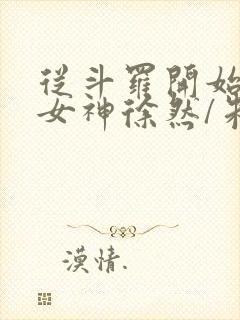 從斗羅開始
女神徐然/朱
漠情.